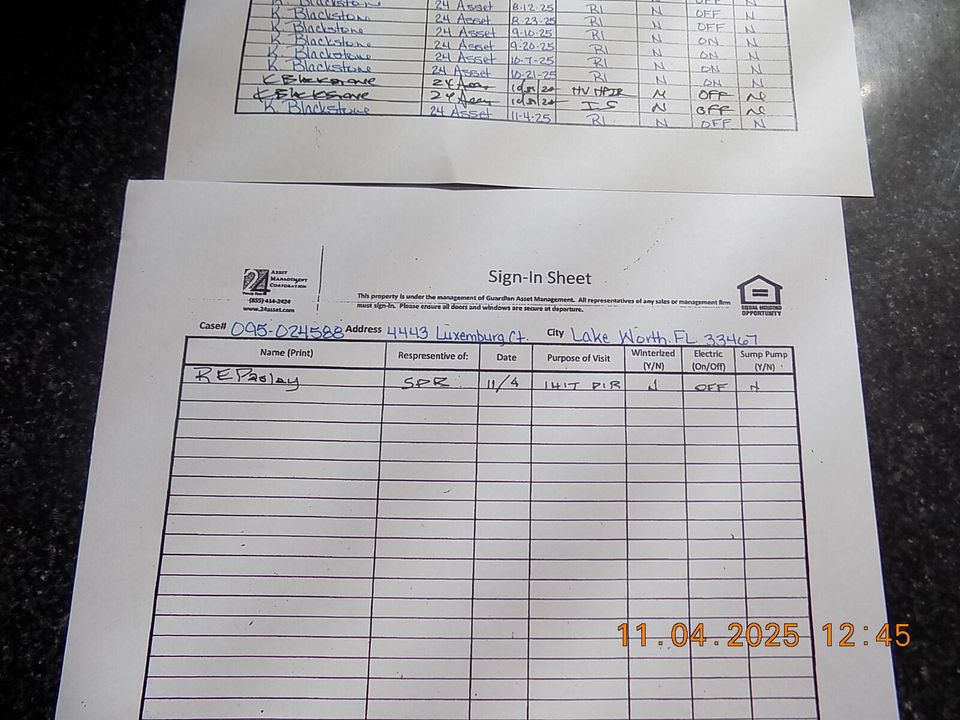 K. Blackstone 24 Asset 8-12-25 RI N OFF N
K. Blackstone 24 Asset 8-23-25 RI N OFF N
K. Blackstone 24 Asset 9-10-25 RI N ON N
K. Blackstone 24 Asset 9-20-25 RI N ON N
K. Blackstone 24 Asset 10-7-25 RI N ON N
K. Blackstone 24 Asset 10-21-25 RI N ON N
N OFF
IS N OFF
K. Blackstone 24 Asset 11-4-25 RI N OFF N
24 ASSET MANAGEMENT CORPORATION
(855) 414-2424
www.24asset.com
Sign-In Sheet
This property is under the management of Guardian Asset Management. All representatives of any sales or management firm
must sign-in. Please ensure all doors and windows are secure at departure.
EQUAL HOUSING
OPPORTUNITY
Case# 095-024588 Address 4443 Luxemburg Ct. City Lake Worth, FL 33467
Name (Print) Respresentive of: Date Purpose of Visit Winterized (Y/N) Electric (On/Off) Sump Pump (Y/N)
R E Pasley SPR 11/4 INIT PIR N OFF N
11.04.2025 12:45